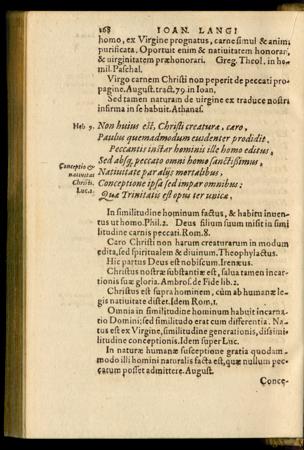 268 IOAN. LANGI
homo, ex Virgine prognatus, carne simul & anima
purificata. Oportuit enim & natiuitatem honorari,
& uirginitatem præhonorari. Greg. Theol. in ho-
mil. Paschal.
Virgo carnem Christi non peperit de peccati pro
pagine. August. tract. 79. in Ioan.
Sed tamen naturam de uirgine ex traduce nostra
infirma in se habuit. Athanas.
Heb 9. Non huius est, Christi creaturæ, caro,
Paulus quemadmodum euidenter prodidit.
Peccantis instar hominis ille homo editus,
Sed absq; peccato omni homo sanctissimus,
Conceptio &
natiuitas
Christi.
Luc. 2.
Natiuitate par alijs mortalibus,
Conceptione ipsa sed impar omnibus:
Quæ Trinitatis est opus ter unicæ,
In similitudine hominum factus, & habitu inuen-
tus ut homo. Phil. 2. Deus filium suum misit in simi
litudine carnis peccati. Rom. 8.
Caro Christi non harum creaturarum in modum
edita, sed spiritualem & diuinum. Theophylactus.
Hic partus Deus est nobiscum. Irenæus.
Christus nostræ substantiæ est, salua tamen incar-
nationis suæ gloria. Ambros. de Fide lib. 2.
Christus est supra hominem, cùm ab humanæ le-
gis natiuitate distet. Idem Rom. 1.
Omnia in similitudine hominum habuit incarna-
tio Domini; sed similitudo erat cum differentia. Na-
tus est ex Virgine, similitudine generationis, dissimi-
litudine conceptionis. Idem super Luc.
In naturæ humanæ susceptione gratia quodam-
modo illi homini naturalis facta est, quæ nullum pec-
catum posset admittere. August.
Conce-